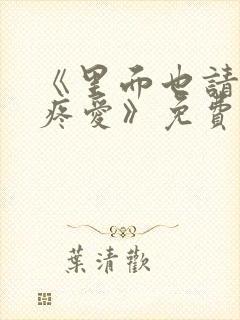 《里面也請
疼愛》免費
葉清歡